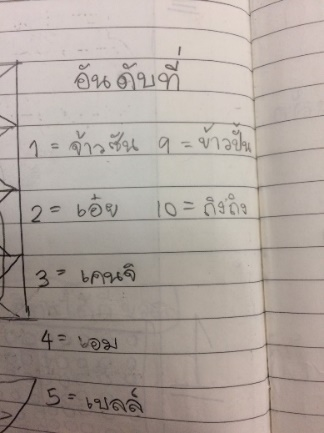 อันดับที่
1 = จ้าวซัน 9 = ข้าวปั้น
2 = เอ้ย 10 = ถิงถิง
3 = เคนจิ
4 = เอม
5 = เบลล์